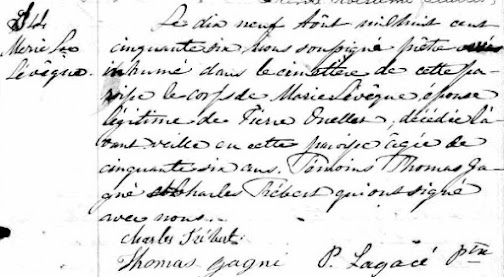 S14
Marie Lse
Lévêque.
Le dix neuf Août mil huit cent
cinquante six, Nous soussigné prêtre avons
inhumé dans le cimetière de cette pa-
roisse le corps de Marie Lévêque épouse
légitime de Pierre Ouellet, décédée l'a-
vant veille en cette paroisse âgée de
cinquante six ans. Témoins Thomas Ga-
gné et Charles Tribert qui ont signé
avec nous.
Charles Tribert
Thomas Gagné P. Lagacé Ptre